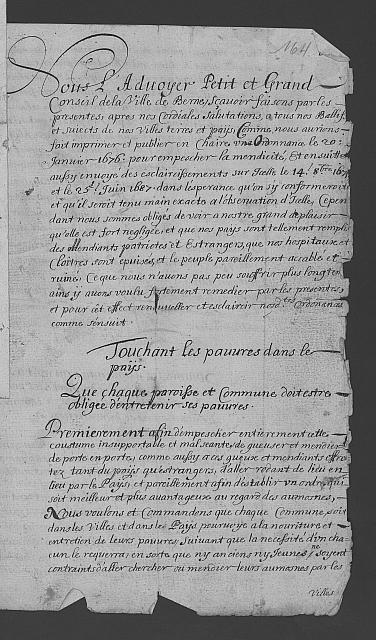 164
Nous L'Advoyer Petit et Grand
Conseil de la Ville de Berne, sçavoir faisons par les
presentes, apres nos Cordiales Salutations, a tous nos Ballifs
et suiects de nos Villes terres et païs, Comme nous aurions
fait imprimer et publier en Chaire, une Ordonnance le 20.
Janvier 1676. pour empescher la mendicité, Et en suitte
aussy envoye des esclaircissements sur Icelle le 14.e 8bre 167
et le 25.e Juin 1687. dans l'esperance qu'on s'y conformeroit
et qu'il seroit tenu main exacte a l'observation d'Icelle, Cepen
dant nous sommes obliges de voir a nostre grand deplaisir
qu'elle est fort negligée, et que nos païs sont tellement remplis
des Mendiants patriotes et Estrangers, que nos hospitaux et
Cloitres sont epuisés, et le peuple pareillement accablé et
ruiné. Ce que n'avons pas peu souffrir plus longtem
ains y avons voulu fortement remedier par les presentes
et pour cet effect renouveller et esclaircir nosd.tes Ordonances
comme s'ensuit.
Touchant les pauvres dans le
païs.
Que chaque paroisse et Commune doit estre
obligée d'entretenir ses pauvres.
Premierement afin d'empescher entierement cette
coustume insupportable et malseante, de gueuser et mendier
de porte en porte, comme aussy a ces gueux et mendiants effron
tez tant du païs qu'estrangers, d'aller rodant de lieu en
lieu par le Païs, et pareillement afin d'establir un ordre, qui
soit meilleur et plus avantageux au regard des aumosnes,
Nous voulons et commandons que chaque Commune, soit
dans les Villes et dans les Païs pourvoye a la nouriture et
entretien de leurs pauvres suivant que la necessité d'un cha
cun le requerra; en sorte que ny anciens ny Jeunes ne soyent
contraints d'aller chercher ou mendier leurs aumosnes par les
Villes